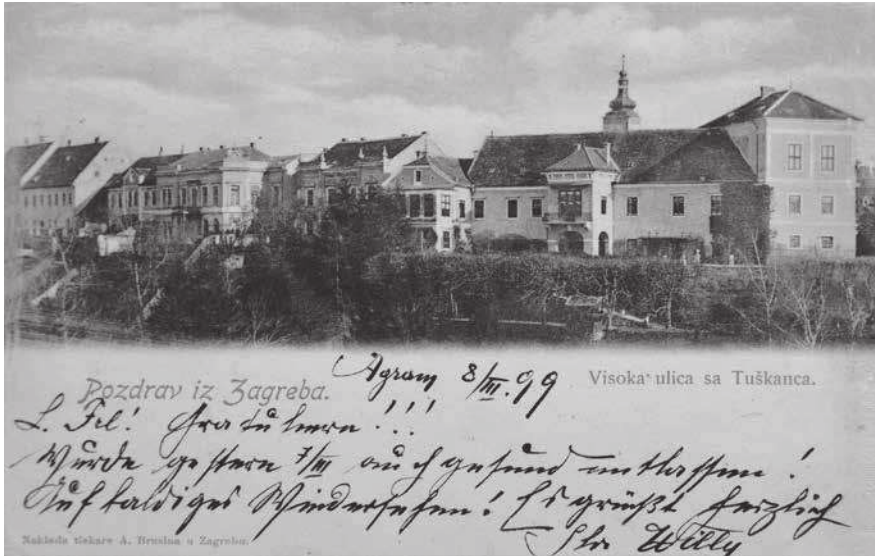 Pozdrav iz Zagreba.
Agram 8/III. 99
Visoka ulica sa Tuškanca.
L. Frl! Gratuliere!!!
Wurde gestern 7/III auch gesund entlassen!
Auf baldiges Wiedersehen! Es grüßt herzlich
Ihr Willy
Naklada tiskare A. Brusina u Zagrebu.